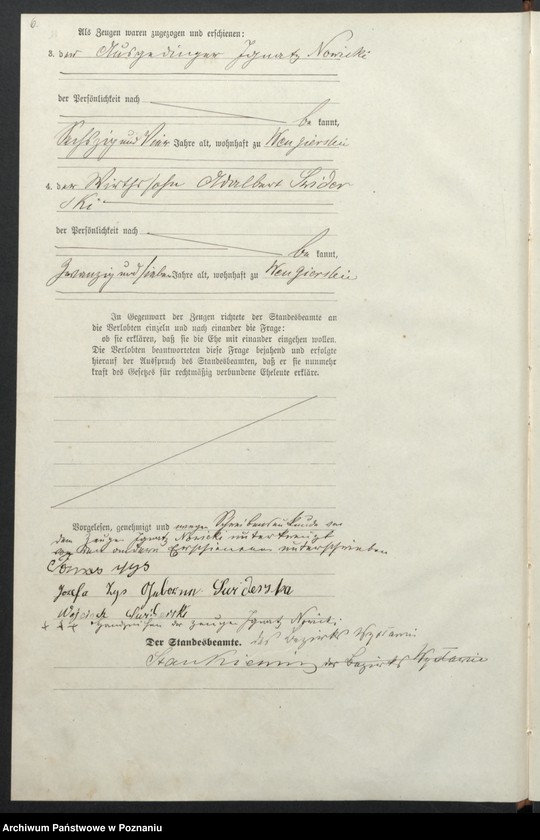 6.
Als Zeugen waren zugezogen und erschienen:
3. der Ausgedinger Ignatz Nowicki
der Persönlichkeit nach
be kannt,
Sechszig und Vier Jahre alt, wohnhaft zu Wengierskie
4. der Wirthssohn Adalbert Svider
ski
der Persönlichkeit nach
be kannt,
Zwanzig und sieben Jahre alt, wohnhaft zu Wengierskie
In Gegenwart der Zeugen richtete der Standesbeamte an
die Verlobten einzeln und nach einander die Frage:
ob sie erklären, daß sie die Ehe mit einander eingehen wollen.
Die Verlobten beantworteten diese Frage bejahend und erfolgte
hierauf der Ausspruch des Standesbeamten, daß er sie nunmehr
kraft des Gesetzes für rechtmäßig verbundene Eheleute erkläre.
Vorgelesen, genehmigt und wegen Schreibensunkunde von
dem Zeugen Ignatz Nowicki unterkreuzt
von den andern Erschienenen unterschrieben
Zys
Josefa Zys Geborna Sviderska
+ + + Handzeichen des Zeugen Ignatz Nowicki
Der Standesbeamte. des Bezirks
des Bezirks
Archiwum Państwowe w Poznaniu